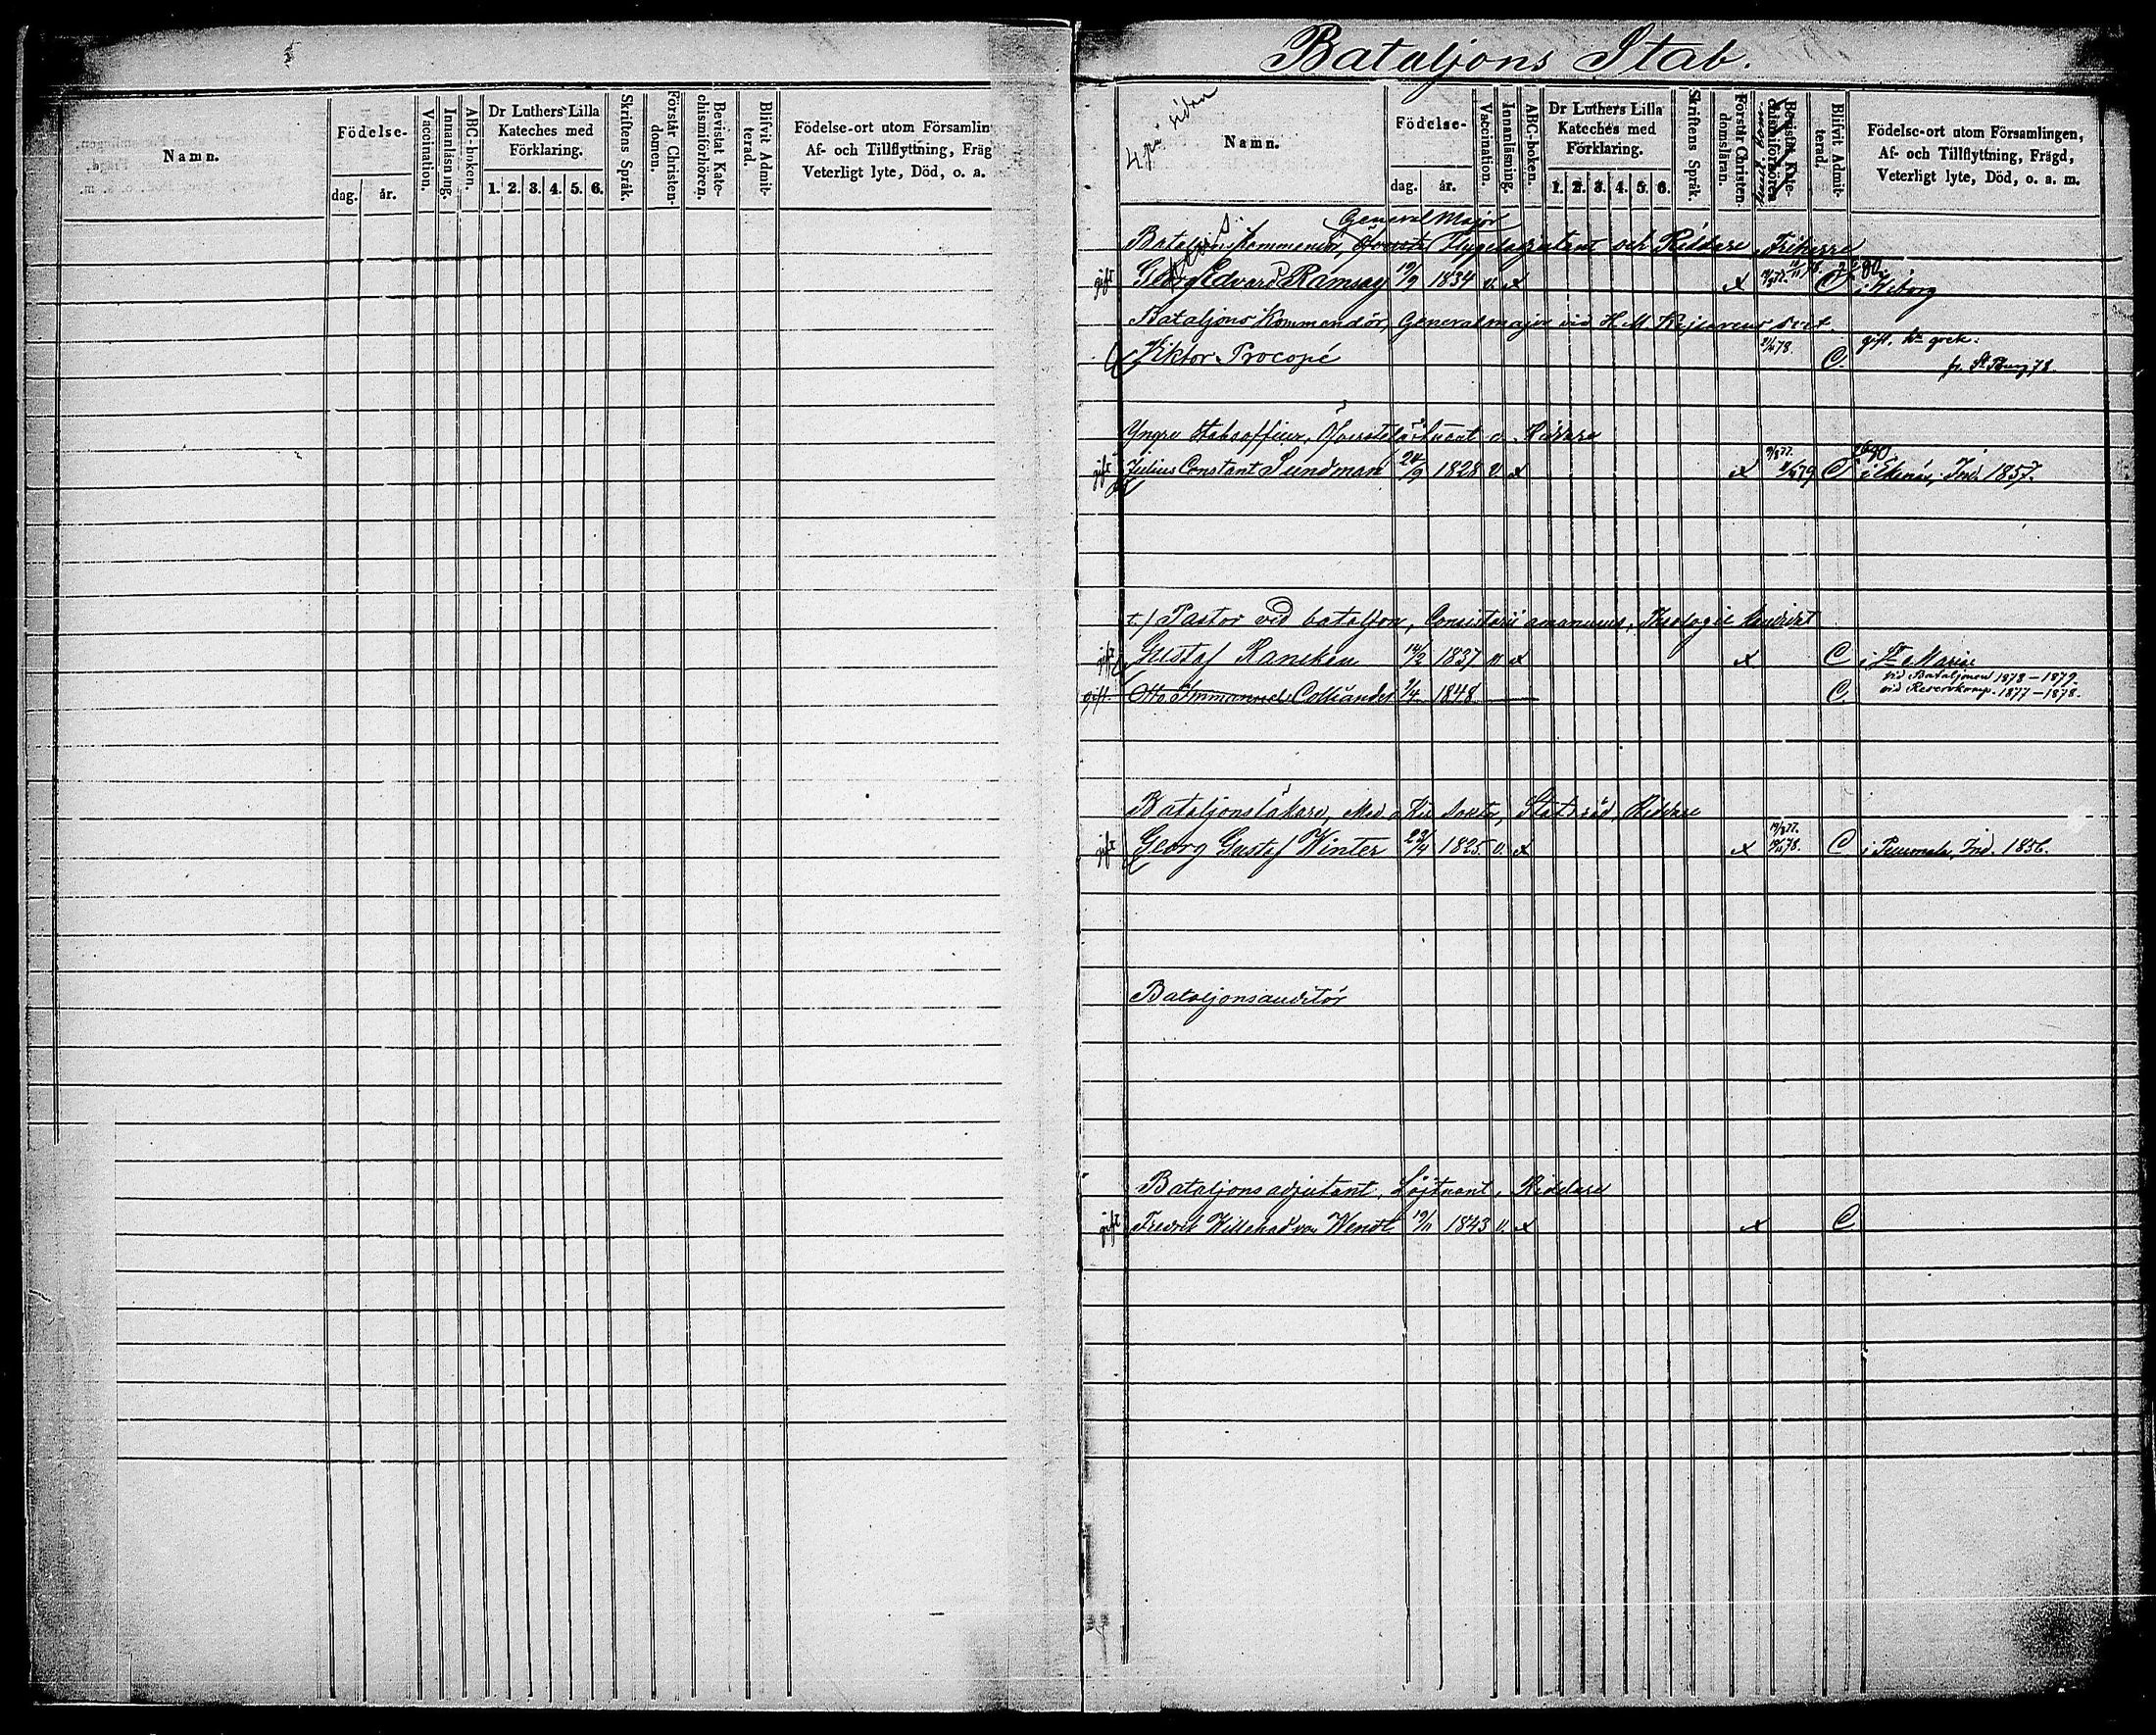 Bataljons Stab.
Namn.
Födelse-
dag. år.
Vaccination.
Innanläsning.
ABC-boken.
Dr Luthers Lilla
Kateches med
Förklaring.
1. 2. 3. 4. 5. 6.
Skriftens Språk.
Förstår Christen-
domen.
Bevistat Kate-
chismiförhören.
Blifvit Admit-
terad.
Födelse-ort utom Församlin
Af- och Tillflyttning, Fräg
Veterligt lyte, Död, o. a.
4 på sidan
Namn.
Födelse-
dag. år.
Vaccination.
Innanläsning.
ABC-boken.
Dr Luthers Lilla
Kateches med
Förklaring.
1. 2. 3. 4. 5. 6.
Skriftens Språk.
Förstår Christen-
domsläran.
Bevistat Kate-
chismiförhören
Blifvit Admit-
terad.
Födelse-ort utom Församlingen,
Af- och Tillflyttning, Frägd,
Veterligt lyte, Död, o. a. m.
General Major
Bataljons Kommendör, Öfverste Flygeladjutant och Riddare, Friherre
gift Georg Edvard Ramsay 19/9 1834 v. x x C i Wiborg
Bataljons Kommendör, Generalmajor vid H. M. Kejsarens svit
Viktor Procopé 78. C. gift. grek:
fr. St Pburg 78.
Yngre Stabsofficer, Öfverstelöjtnant o. Riddare
gift Julius Constant Sundman 24/9 1828 v. x x 79 C i Ekenäs, Ind. 1857.
t.f Pastor vid bataljon, Consistorii amanuens, Theologie Kandidat
gift Gustaf Rancken 14/2 1837 v x x C i St Marie
vid Bataljonen 1878-1879.
gift. Otto Immanuel Colliander 1/4 1848 C. vid Reservkomp. 1877-1878.
Bataljonsläkare, Med o Kir Doktor, Statsråd, Riddare
gift Georg Gustaf Winter 23/4 1825. v. x x 78. C. i Pummala, Ind. 1856.
Bataljonsauditör
Bataljonsadjutant, Löjtnant, Riddare
gift Fredrik Willehad von Wendt. 19/11 1843 v. x x C